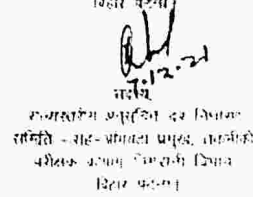 बिहार पटना।
7.12.21
सदस्य,
राज्यस्तरीय अनुसूचित दर निर्धारण
समिति -सह- अभियंता प्रमुख, तकनीकी
परीक्षक कोषांग निगरानी विभाग
बिहार पटना।